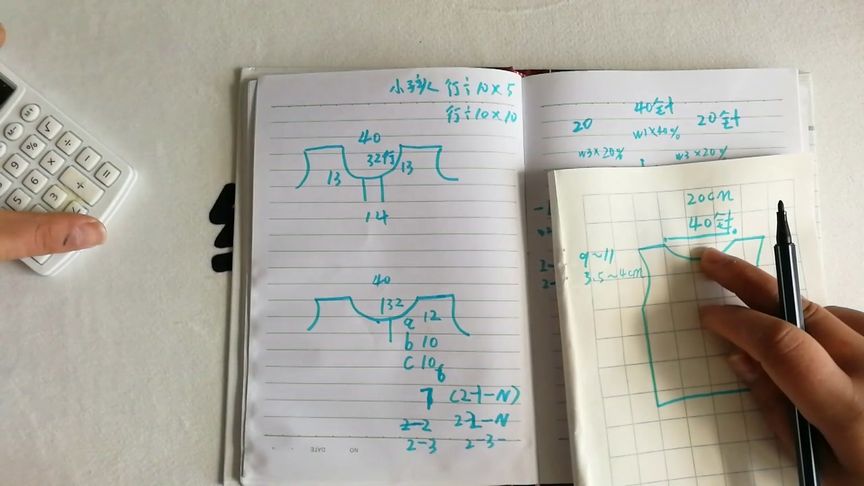 小孩 行÷10×5
行÷10×10
40
32行
13 13
14
40
132
a 12
b 10
c 10
7 (2-1-N)
2-2 2-2-N
2-3 2-3-
NO DATE
40针
20 20针
W1×40%
W3×20% W3×20%
20cm
40针
9~11
3.5~4cm